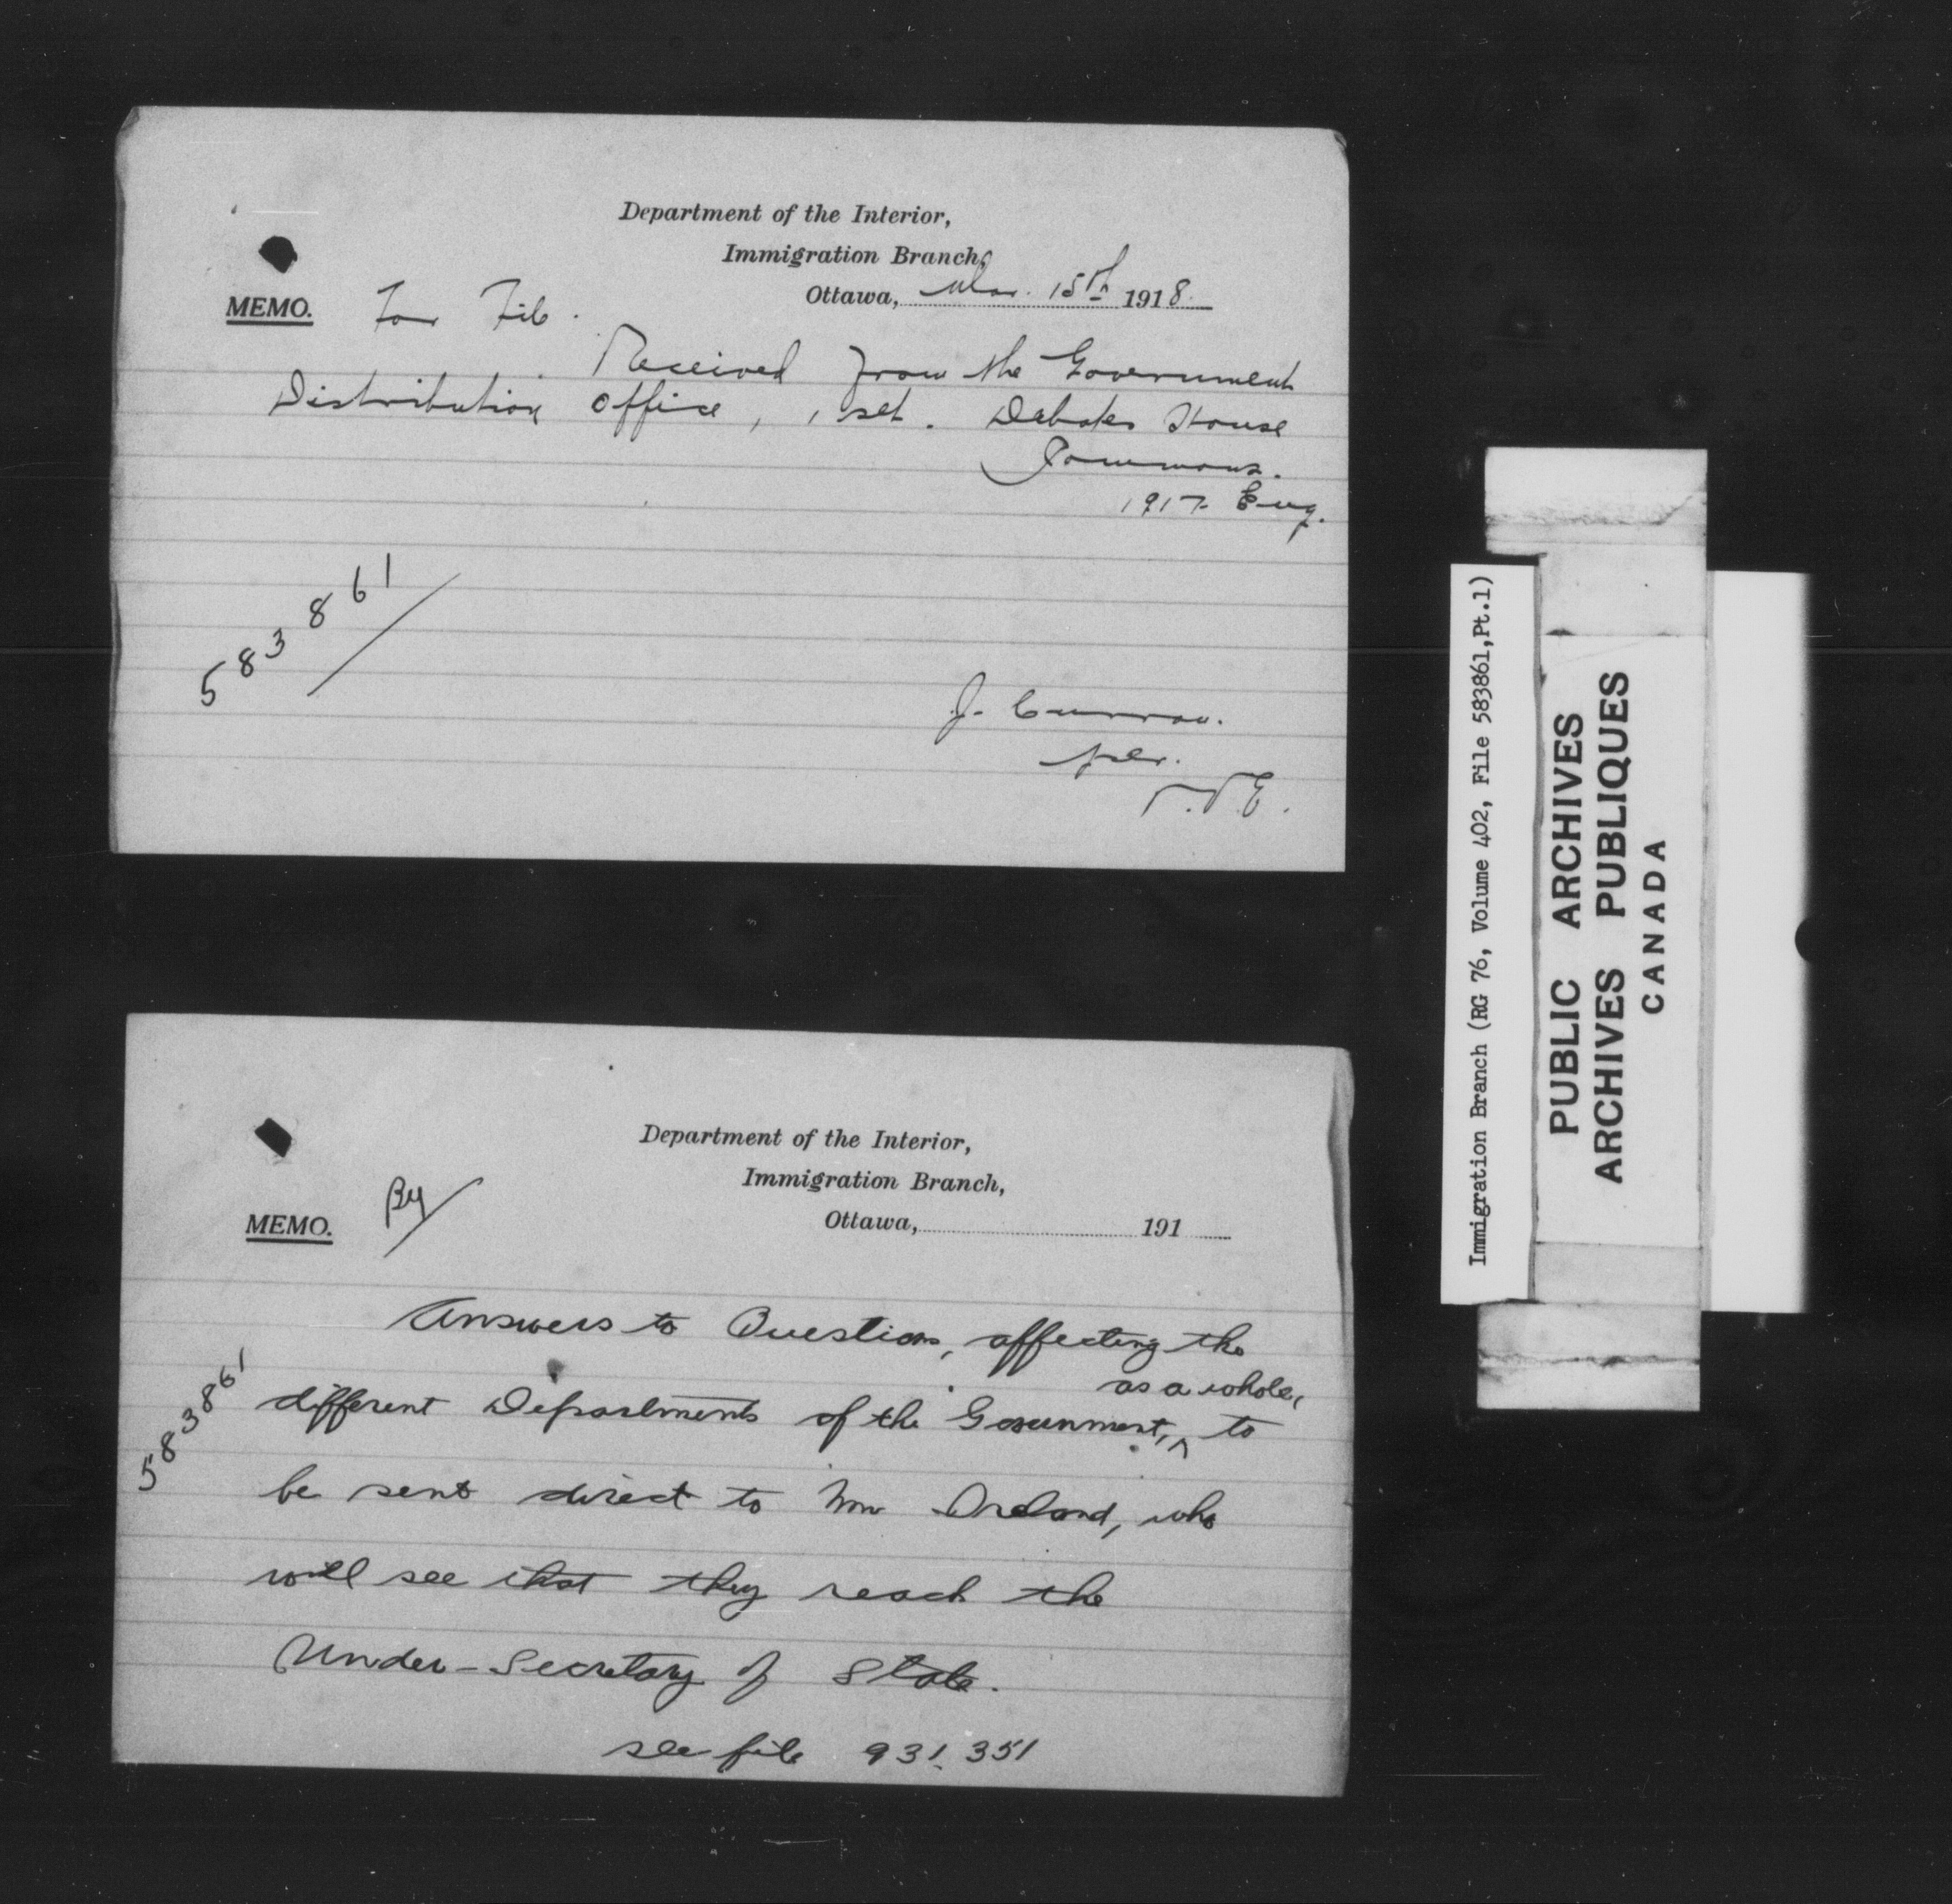 Department of the Interior,
Immigration Branch,
Ottawa, Mar. 15th 1918.
MEMO. For File.
Received from the Government
Distribution Office, 1 set. Debates House
Commons.
1917 Eng.
583861
J. Curran.
per.
Department of the Interior,
Immigration Branch,
Ottawa, 191
MEMO.
By
Answers to Questions, affecting the
as a whole,
different Departments of the Government, ^ to
583861
be sent direct to Mr Ireland, who
will see that they reach the
Under-Secretary of State.
see file 931.351
Immigration Branch (RG 76, Volume 402, File 583861,Pt.1)
PUBLIC ARCHIVES
ARCHIVES PUBLIQUES
CANADA